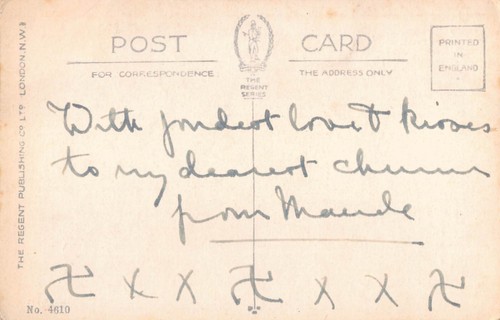 POST CARD
FOR CORRESPONDENCE
THE ADDRESS ONLY
THE
REGENT
SERIES
PRINTED
IN
ENGLAND
THE REGENT PUBLISHING CO LTD LONDON. N.W.1
With fondest love & kisses
to my dearest chum
from Maude
卐 x x 卐 x x 卐
No. 4610